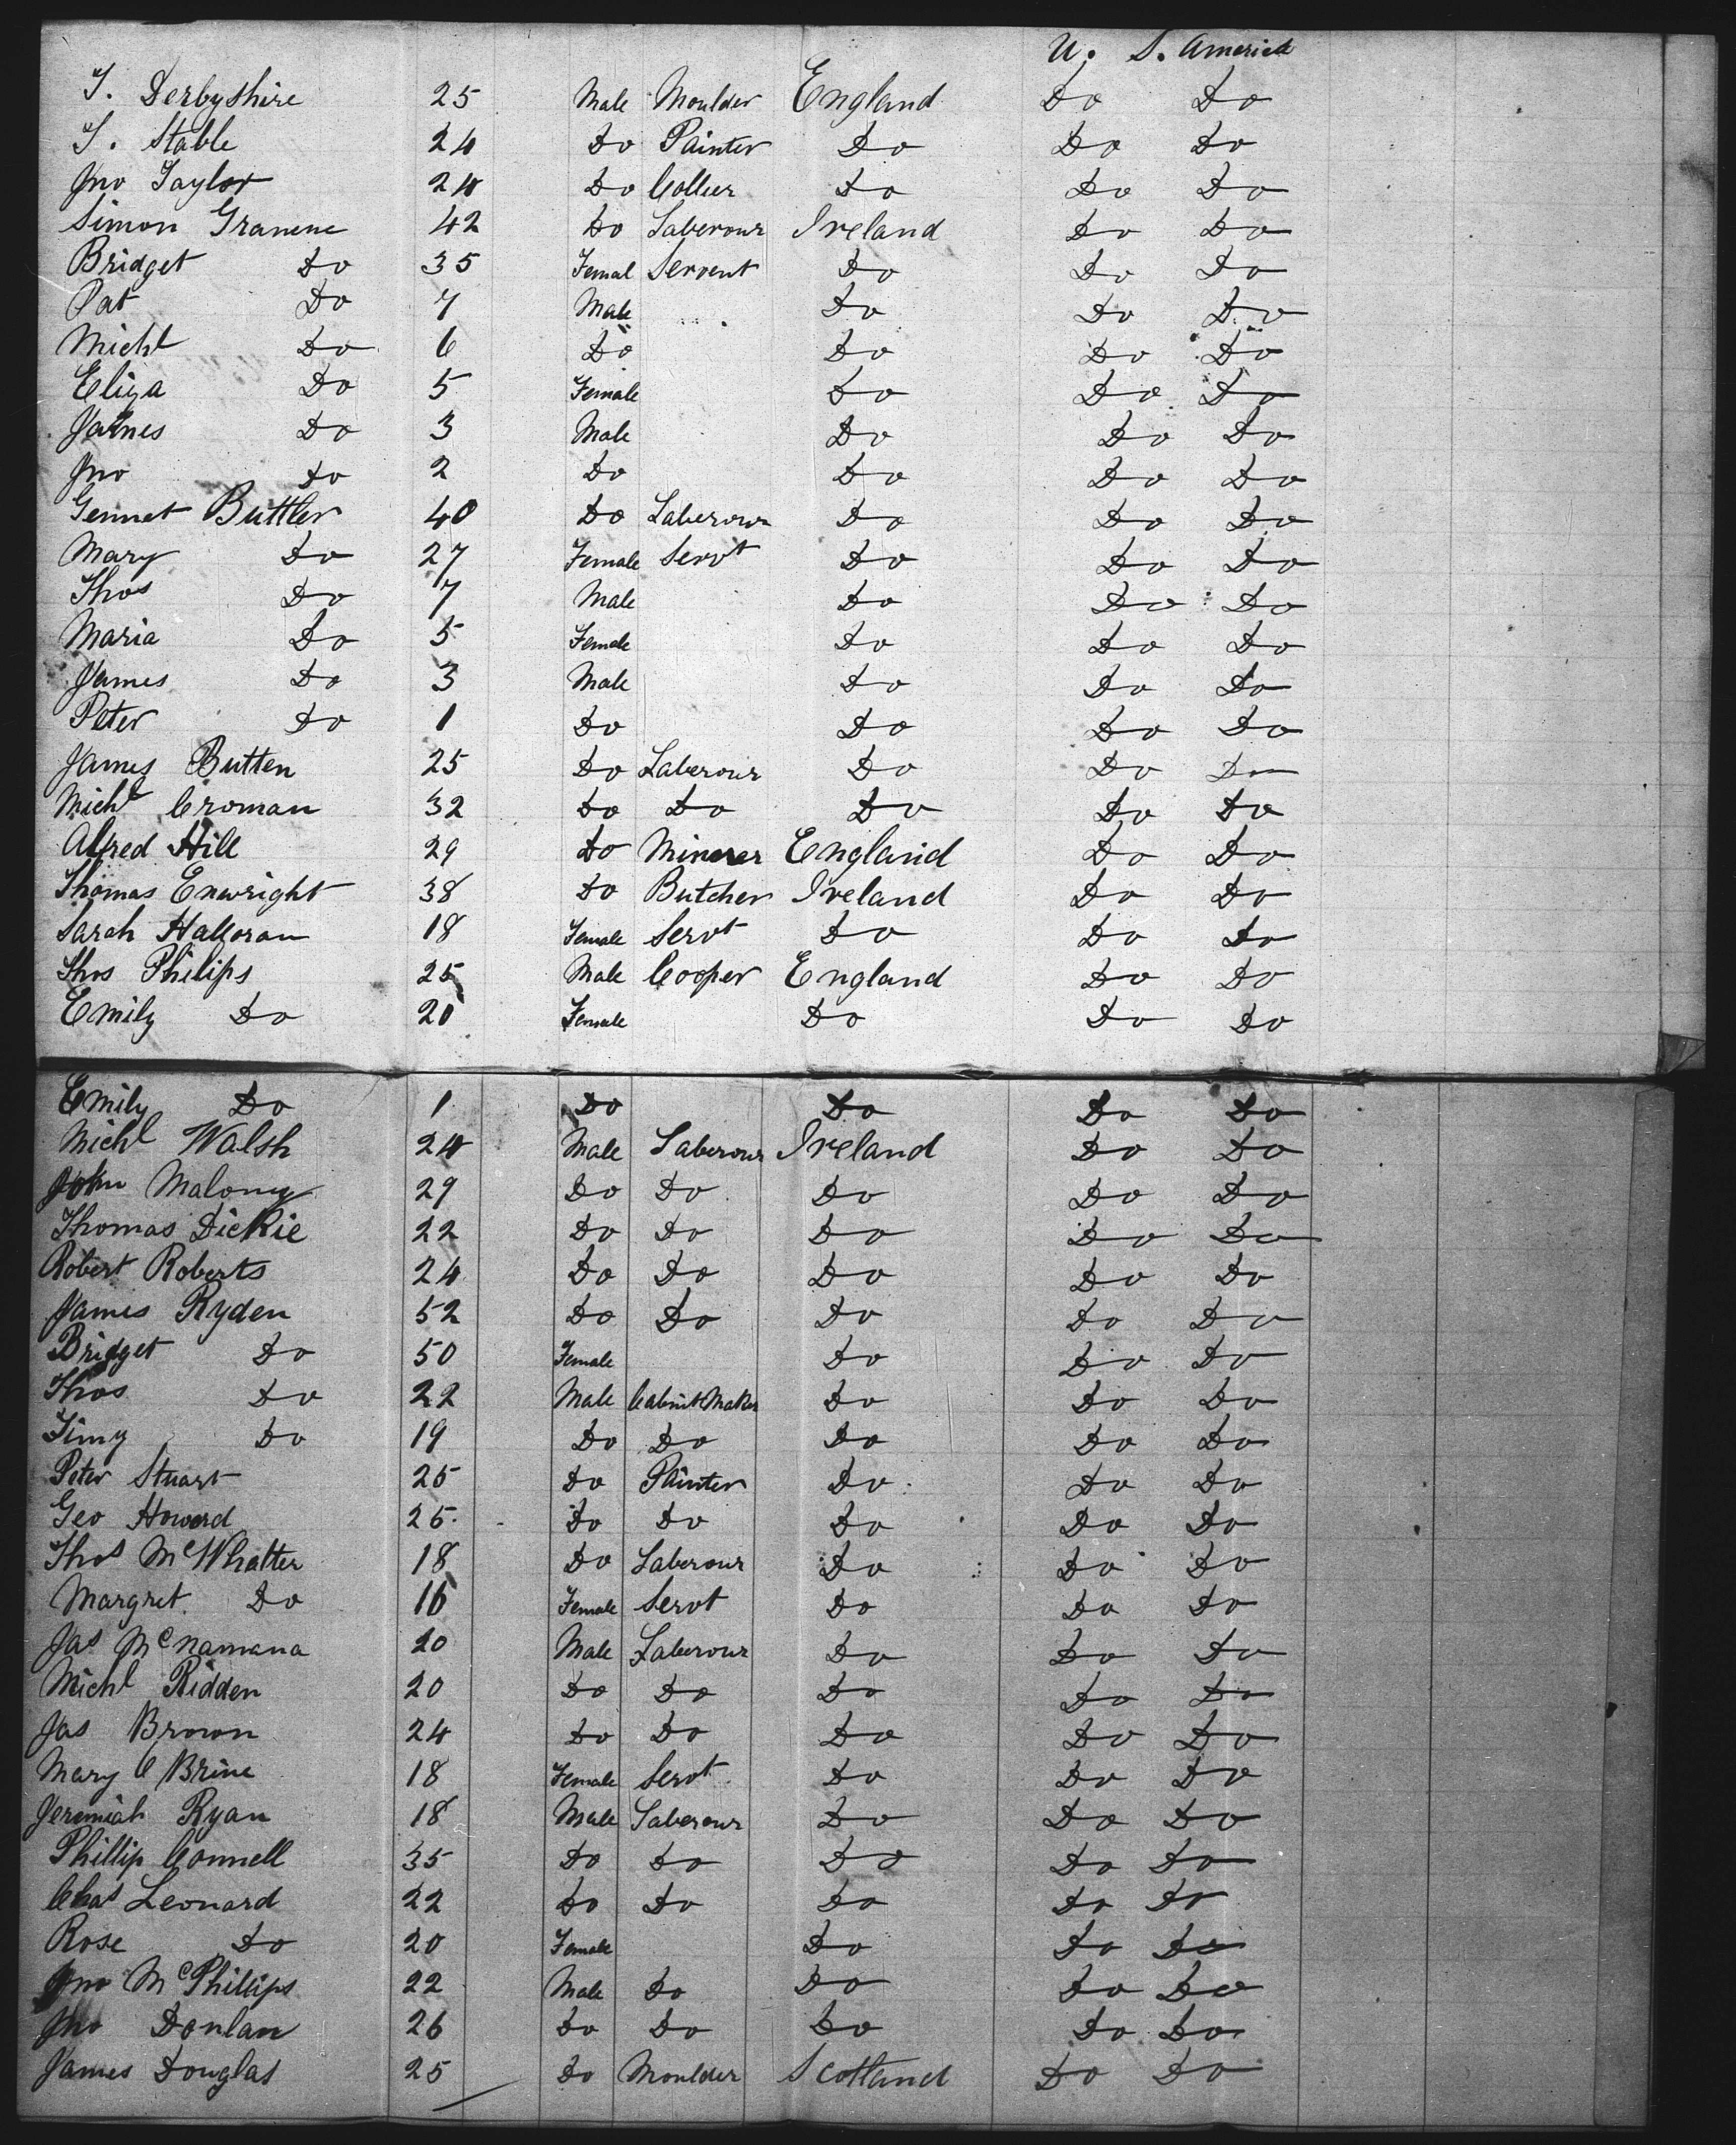 U. S. America
T. Derbyshire 25 Male Moulder England Do Do
T. Stable 24 Do Painter Do Do Do
Jno Taylor 24 Do Collier Do Do Do
Simon 42 Do Laberour Ireland Do Do
Bridget Do 35 Femal Servent Do Do Do
Pat Do 7 Male Do Do Do
Michl Do 6 Do Do Do Do
Eliza Do 5 Female Do Do Do
James Do 3 Male Do Do Do
Jno Do 2 Do Do Do Do
Gennet Buttler 40 Do Laberour Do Do Do
Mary Do 27 Female Servt Do Do Do
Thos Do 7 Male Do Do Do
Maria Do 5 Female Do Do Do
James Do 3 Male Do Do Do
Peter Do 1 Do Do Do Do
James Butten 25 Do Laberour Do Do Do
Michl Croman 32 Do Do Do Do Do
Alfred Hill 29 Do England Do Do
Thomas Enwright 38 Do Butcher Ireland Do Do
Sarah Halloran 18 Female Servt Do Do Do
Thos Philips 25 Male Cooper England Do Do
Emily Do 20 Female Do Do Do
Emily Do 1 Do Do Do Do
Michl Walsh 24 Male Laberour Ireland Do Do
John Malony 29 Do Do Do Do Do
Thomas Dickie 22 Do Do Do Do Do
Robert Roberts 24 Do Do Do Do Do
James Ryden 52 Do Do Do Do Do
Bridget Do 50 Female Do Do Do
Thos Do 22 Male Cabint Maker Do Do Do
Timy Do 19 Do Do Do Do Do
Peter Stuart 25 Do Painter Do Do Do
Geo Howard 25 Do Do Do Do Do
Thos McWhatter 18 Do Laberour Do Do Do
Margret Do 16 Female Servt Do Do Do
Jas McNamana 20 Male Laberour Do Do Do
Michl Ridden 20 Do Do Do Do Do
Jas Brown 24 Do Do Do Do Do
Mary O Brine 18 Female Servt Do Do Do
Jeremiah Ryan 18 Male Laberour Do Do Do
Phillip Connell 35 Do Do Do Do Do
Chas Leonard 22 Do Do Do Do Do
Rose Do 20 Female Do Do Do
Jno McPhillips 22 Male Do Do Do Do
Jno Donlan 26 Do Do Do Do Do
James Douglas 25 Do Moulder Scotland Do Do